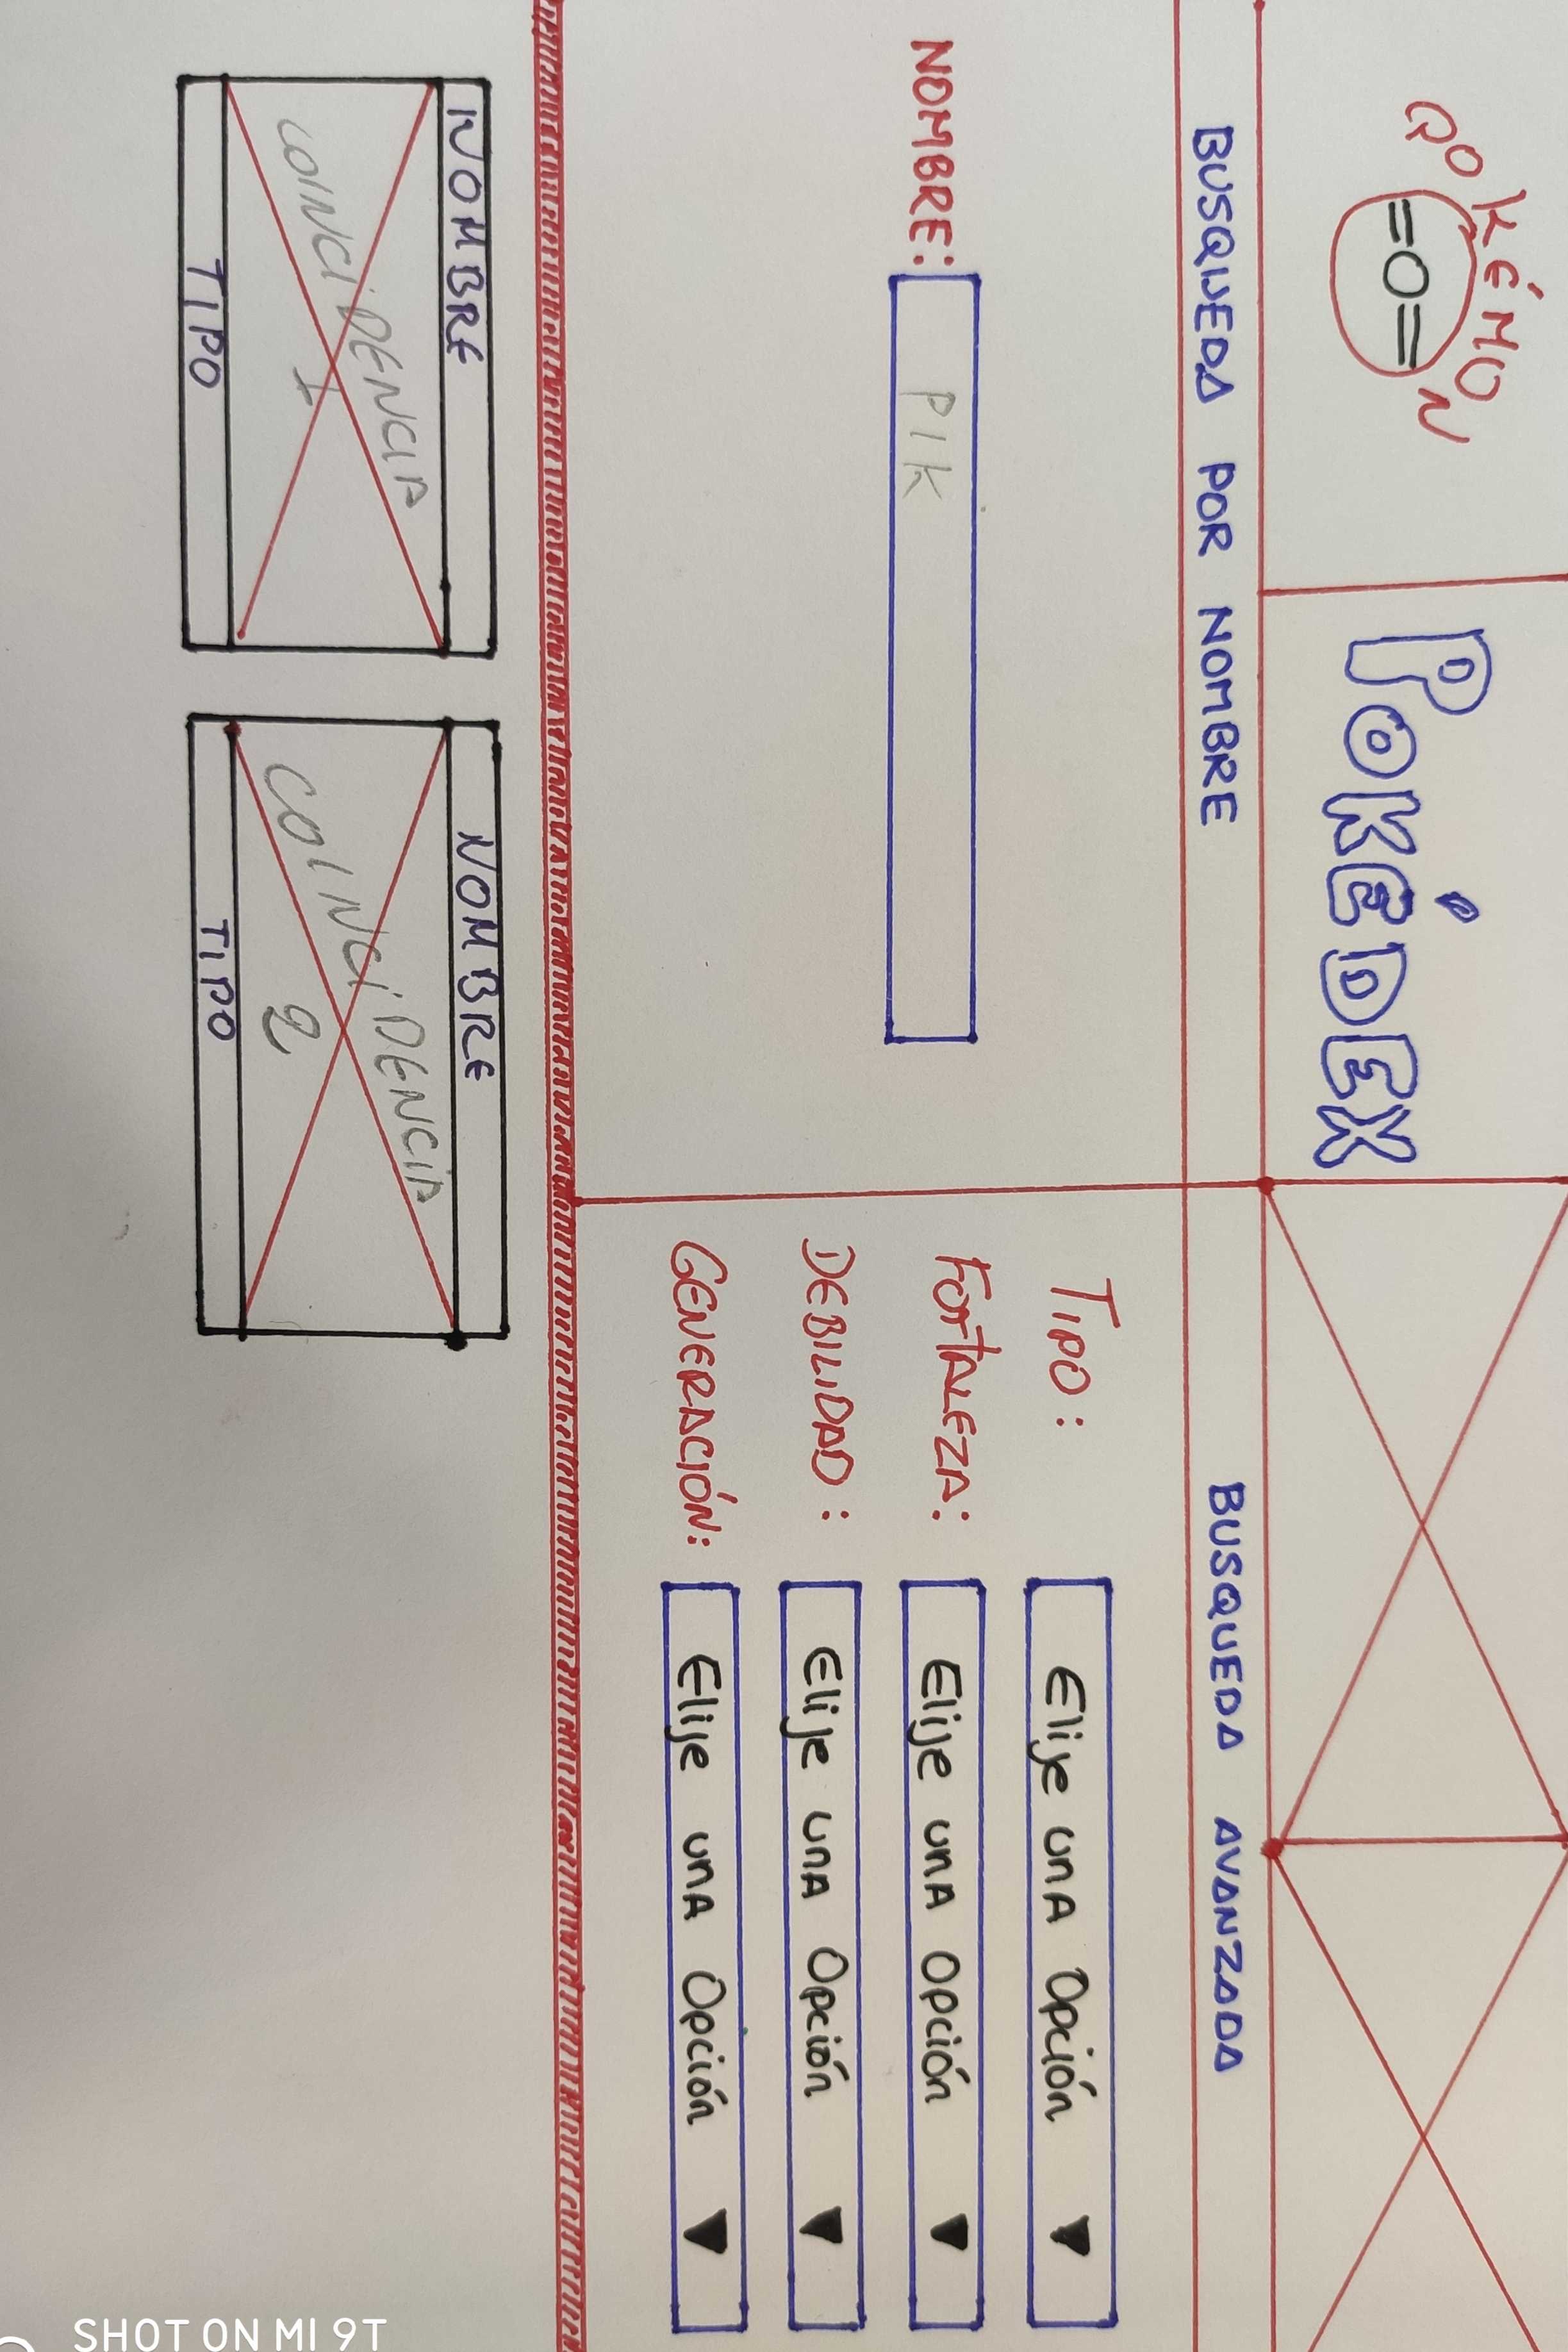 POKÉMON
POKÉDEX
BUSQUEDA POR NOMBRE
BUSQUEDA AVANZADA
NOMBRE: PIK
TIPO: Elije una Opción ▼
FORTALEZA: Elije una Opción ▼
DEBILIDAD: Elije una Opción ▼
GENERACIÓN: Elije una Opción ▼
NOMBRE
COINCIDENCIA
1
TIPO
NOMBRE
COINCIDENCIA
2
TIPO
SHOT ON MI 9T